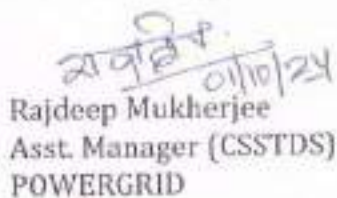 01/10/24
Rajdeep Mukherjee
Asst. Manager (CSSTDS)
POWERGRID